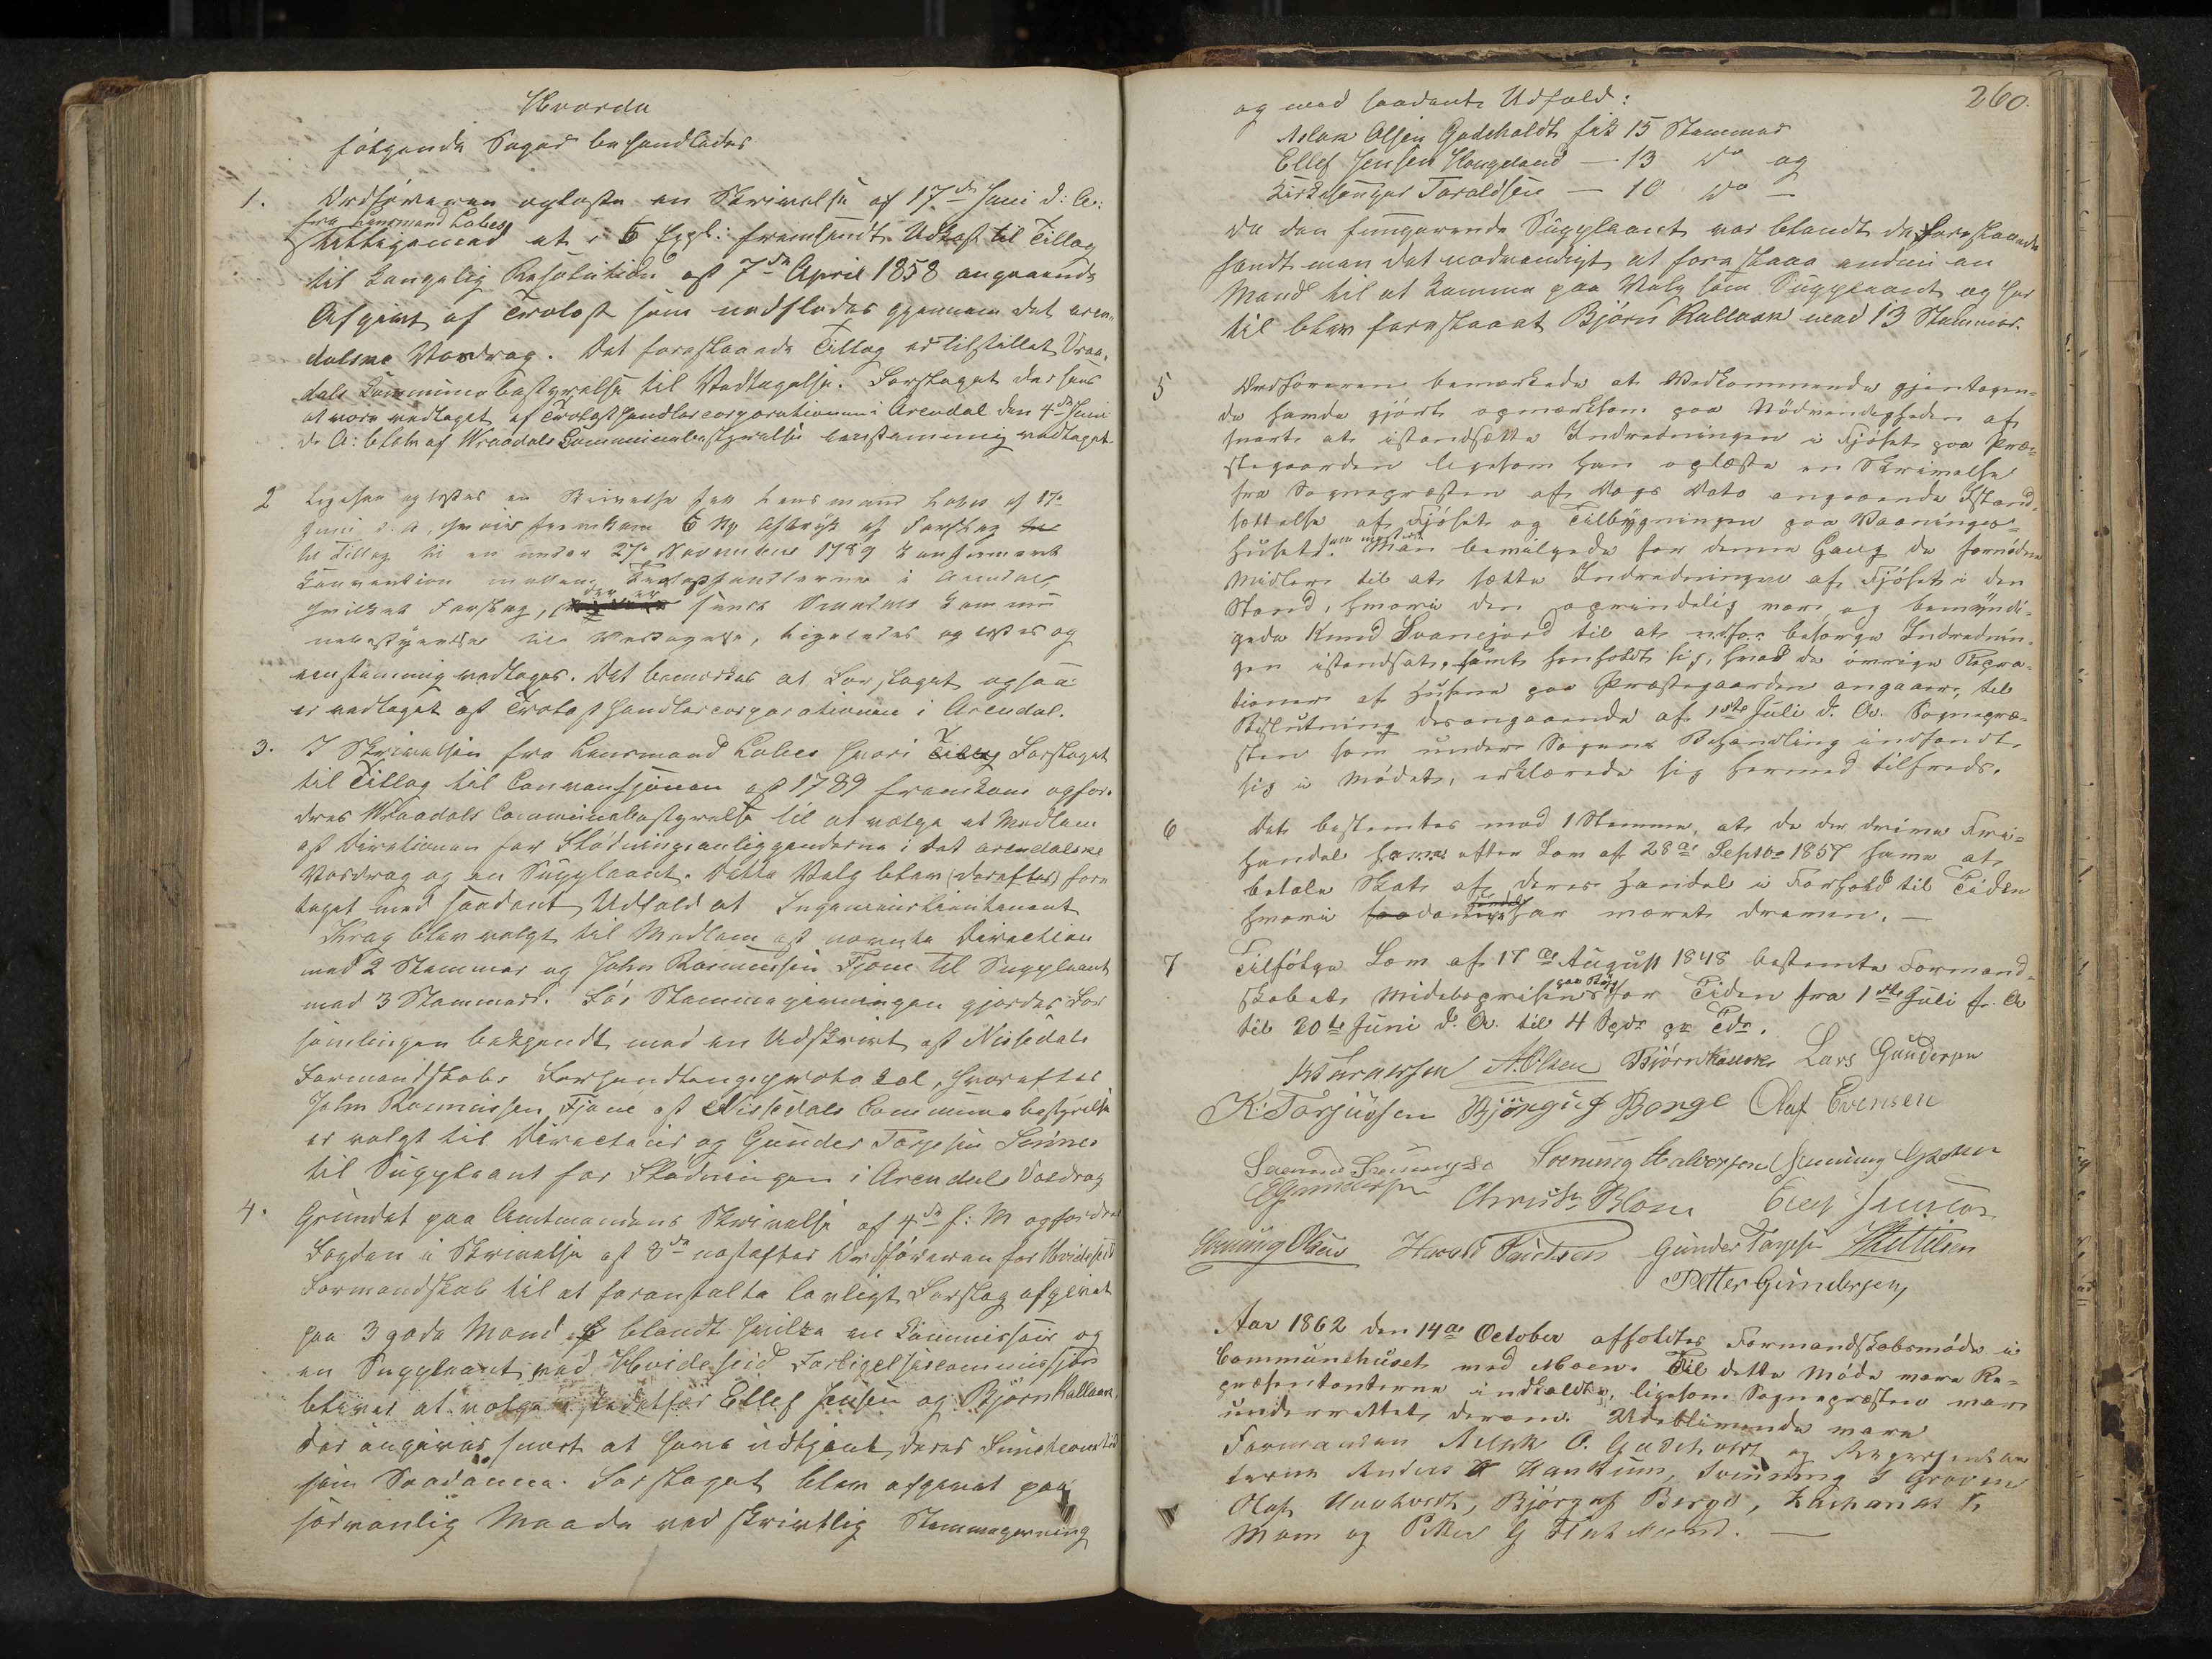 Hvorda
følgende Sager behandledes
1. Ordføreren oplæste en Skrivelse af 17de Juni d: A:
fra Lensmand Lobes
tilligemed et i 6 Expl: fremsendt Udkast til Tillæg
til kongelig Resolution af 7de April 1858 angaaende
Afgivt af Trælast som nedflødes gjennem det aren-
dalske Vasdrag. Det foreslaaede Tillæg er tilstillet Vraa-
dals Communebestyrelse til Vedtagelse. Forslaget der sees
at være vedtaget af Trælasthandlercorporationen i Arendal den 4de Juni
d. A: blev af Wraadals Communebestyrelse eenstemmig vedtaget
2 Ligesaa oplæstes en Skrivelse fra Lensmand Lobes af 17de
Juni d. A, hvori fremkom 6 Aftryk af Forslag
til Tillæg til en under 27de November 1789 konfirmeret
Convention mellem Trælasthandlerne i Arendal,
hvilket Forslag, der er sendt Vraadals Kommu
nebestyrelse til Vedtagelse, ligeledes oplæstes og
eenstemmig vedtoges. Det bemærkes at Forslaget ogsaa
er vedtaget af Trælasthandlercorporationen i Arendal.
3. I Skrivelsen fra Lensmand Lobes hvori Forslaget
til Tillæg til Convensjonen af 1789 fremkom opfor-
dres Wraadals Communebestyrelse til at vælge et Medlem
af Direktionen for Flødningsanliggenderne i det arendalske
Vasdrag og en Suppleant. Dette Valg blev (derefter) fore
taget med saadant Udfald at Ingenieurlieutenant
Krag blev valgt til Medlem af nævnte Direction
med 2 Stemmer og John Rasmussen Fjone til Suppleant
med 3 Stemmer. Før Stemmegivningen gjordes For
samlingen bekjendt med en Udskrivt af Nissedals
Formandskabs Forhandlingsprotokol, hvorefter
John Rasmussen Fjone af Nissedals Communebestyrelse
er valgt til Directeur og Gunder Tarjesen
til Suppleant for Flødningen i Arendals Vasdrag
4. Grundet paa Amtmandens Skrivelse af 4de f: M opfordrer
Fogden i Skrivelse af 8de næstefter Ordføreren for Hvideseid
Formandskab til at foranstalte lovligt Forslag afgivet
paa 3 gode Mænd blandt hvilke en Commissair og
en Suppleant ved Hvideseid Forligelsescommission
bliver at vælge istedetfor Ellef Jensen og Bjørn Kallaak,
der angives snart at have udtjent deres Functionstid
som Saadanne. Forslaget blev afgivet paa
sædvanlig Maade ved skrivtlig Stemmegivning
260.
og med saadant Udfald:
Aslak Olsen Gadeholdt fik 15 Stemmer
Ellef Jensen Haugeland — 13 do og
Kirkesanger Taraldsen — 10 do —
Da den fungerende Suppleant var blandt de Foreslaaede
fandt man det nødvendigt at foreslaae endnu en
Mand til at komme paa Valg som Suppleant og her
til blev foreslaaet Bjørn Kallaak med 13 Stemmer.
5 Ordføreren bemærkede at Vedkommende gjentagen-
de havde gjort opmærksom paa Nødvendigheden af
snart at istandsætte Indredningen i Fjøset paa Præ-
stegaarden ligesom han oplæste en Skrivelse
fra Sognepræsten af Dags Dato angaaende Istand-
sættelse af Fjøset og Tilbygningen paa Vaanings-
huset. Man bevilgede for denne Gang de fornødne
Midler til at sætte Indredningen af Fjøset i den
Stand, hvori den oprindelig var og bemyndi-
gede Knud Svanejord til at besørge Indrednin-
gen istandsat, samt henholdt sig, hvad de øvrige Repra-
tioner af Husene paa Præstegaarden angaaer, til
Beslutning desangaaende af 1ste Juli d. A. Sognepræ-
sten som under Sagens Behandling indfandt
sig i Mødet, erklærede sig hermed tilfreds.
6 Det bestemtes med 1 Stemme, at de der drive Fri-
handel efter Lov af 28de Septbr 1857 have at
betale Skat af deres Handel i Forhold til Tiden
hvori saadan Handel har været dreven. —
7 Tilfølge Lov af 17de August 1848 bestemte Formand-
skabet Middelsprisen paa Rug for Tiden fra 1ste Juli f. A
til 20de Juni d. A. til 4 Spdr pr Tdr.
A. Olsen Bjørn Kallaak Lars Gundersen
K: Tarjussen Bjørguf Berge Olaf Evensen
Svenung Halvorsen
EGundersen Christn Blom Ellef Jensen
Olsen Gunder Tarjesen Kittilsen
Petter Gundersen
Aar 1862 den 14de October afholdtes Formandskabsmøde i
Communehuset ved Moen. Til dette Møde vare Re-
præsentanterne indkaldte, ligesom Sognepræsten var
underrettet derom. Udeblivende vare
Formanden Aslak O. Gadeholdt og Repræsentan
terne Anders Haukum, Svenung Groven
Olaf Udeholdt, Bjørguf Berge, Zacharias
Moen og Petter G